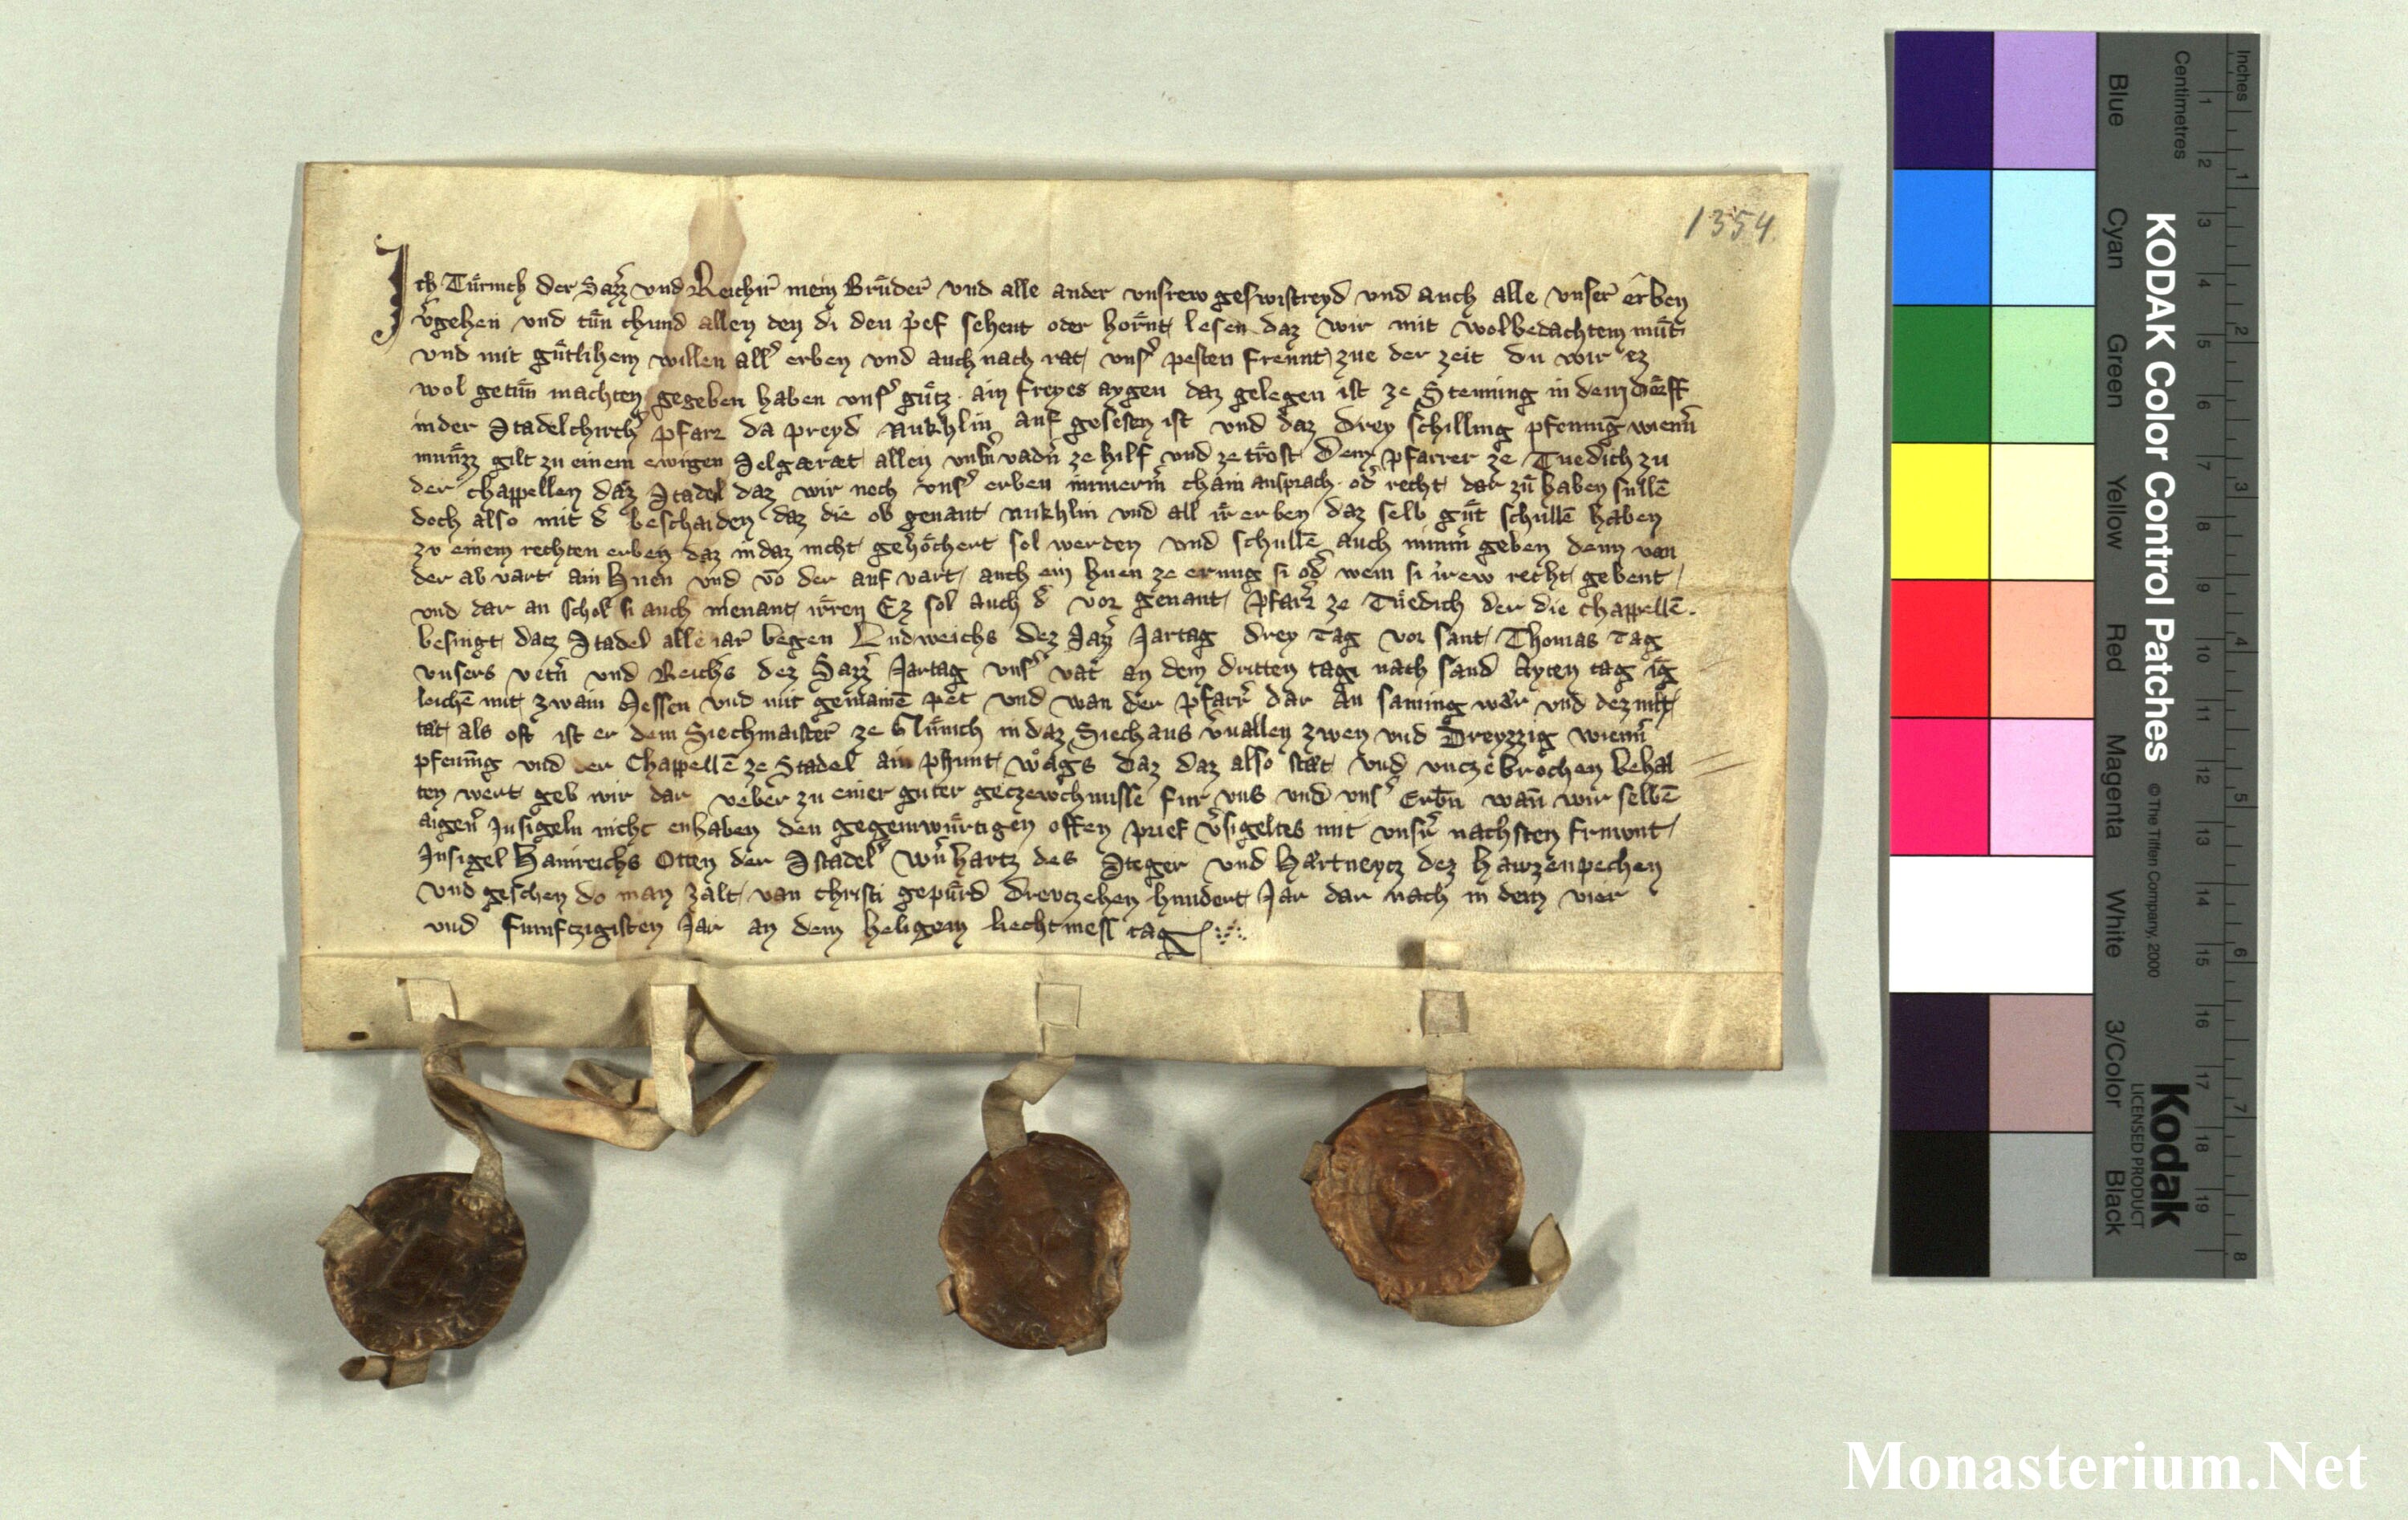 1354
Ich Türinch der Sazz und Reicher mein Brüder und alle ander unsrew geswistreyd und auch alle unser erben
vgehen und tün chund allen den di den pref sehent oder hörnt lesen daz wir mit wolbedachtem müt
und mit gütlihem willen all erben und auch nach rat uns pesten freunt zue der zeit du wir ez
wol getün machten gegeben haben uns gütz ain freyes aygen daz gelegen ist ze Steining in dem dörff
in der Stadelchirch pfarr da preyd Nukhlin auf gesesen ist und daz drey schilling pfening wienn
münzz gilt zu einem ewigen Selgeræt allen unsn vadn ze hilf und ze tröst dem pfarrer ze Tuedich zu
der chappellen daz Stadel daz wir noch uns erben immerm chain ansprach od recht dar zü haben sullē
doch also mit d beschaiden daz die ob genant Nukhlin und all ir erben daz selb güt schullē haben
zu einem rechten erben daz in daz nicht gehöchert sol werden und schullē auch nimm geben denn van
der ab vart ain huen und vō der auf vart auch ein huen ze erung si od wem si irew recht gebent
und dar an schol si auch niemant irren Ez sol auch d vor genant pfarr ze Tüedich der die chappellē
besingt dacz Stadel alle iar begen Ludweichs dez Sazz Jartag drey tag vor sant Thomas tag
unsers vetn und Reichs dez Sazz Jartag uns vat an dem dritten tag nach sand Ayten tag
leichē mit zwain Messen und mit gemainē pet und wan der pfarr dar an saming wær und dez nicht
tæt als oft ist er dem Siechmaister ze Glünich in daz Siechaus vuallen zwen und Dreyzzig wienn
pfening und der Chappellē ze Stadel ain phunt wags daz daz also stæt und unczebrochen behal
ten wert geb wir dar ueber zu einer guter geczewchnusse fur uns und uns Erbn wan wir selbē
aigen Insigeln nicht enhaben den gegenwürtigen offen prief vsigelten mit unsn nachsten frewnt
Insigel Hainreichs Otten der Stadel Wnhartz des Steger und Hærtneycz dez Hawzenpechen
und geschen do man zalt van christi gepürd Drevczehen hundert Jar dar nach in dem vier
und funfczigisten Jar an dem heligem liechtmess tag
Inches
Centimetres
KODAK Color Control Patches
© The Tiffen Company, 2000
Kodak
LICENSED PRODUCT
Blue
Cyan
Green
Yellow
Red
Magenta
White
3/Color
Black
1 2 3 4 5 6 7 8
1 2 3 4 5 6 7 8 9 10 11 12 13 14 15 16 17 18 19
Monasterium.Net